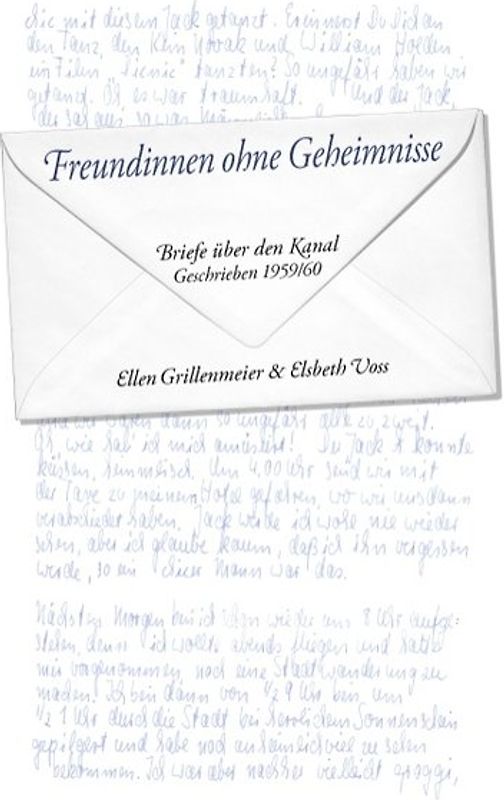 chic mit diesem Jack getanzt. Erinnerst Du Dich an
den Tanz, den Kim Novak und William Holden
im Film "Picnic" tanzten? So ungefähr haben wir
getanzt. Oh, es war traumhaft. Und der Jack,
der sah aus
Freundinnen ohne Geheimnisse
Briefe über den Kanal
Geschrieben 1959/60
Ellen Grillenmeier & Elsbeth Voss
und wir waren dann so ungefähr alle zu zweit.
Oh, wie hab' ich mich amüsiert! Der Jack konnte
küssen, himmlisch. Um 4.00 Uhr sind wir mit
der Taxe zu meinem Hotel gefahren, wo wir uns dann
verabschiedet haben. Jack werde ich wohl nie wieder
sehen, aber ich glaube kaum, daß ich ihn vergessen
werde, so ein chicer Mann war das.
Nächsten Morgen bin ich schon wieder um 8 Uhr aufge-
stehen, denn ich wollte abends fliegen und hatte
mir vorgenommen, noch eine Stadtwanderung zu
machen. Ich bin dann von ½ 9 Uhr bis um
½ 1 Uhr durch die Stadt bei herrlichem Sonnenschein
gepilgert und habe noch unheimlich viel zu sehen
bekommen. Ich war aber nachher vielleicht groggi,